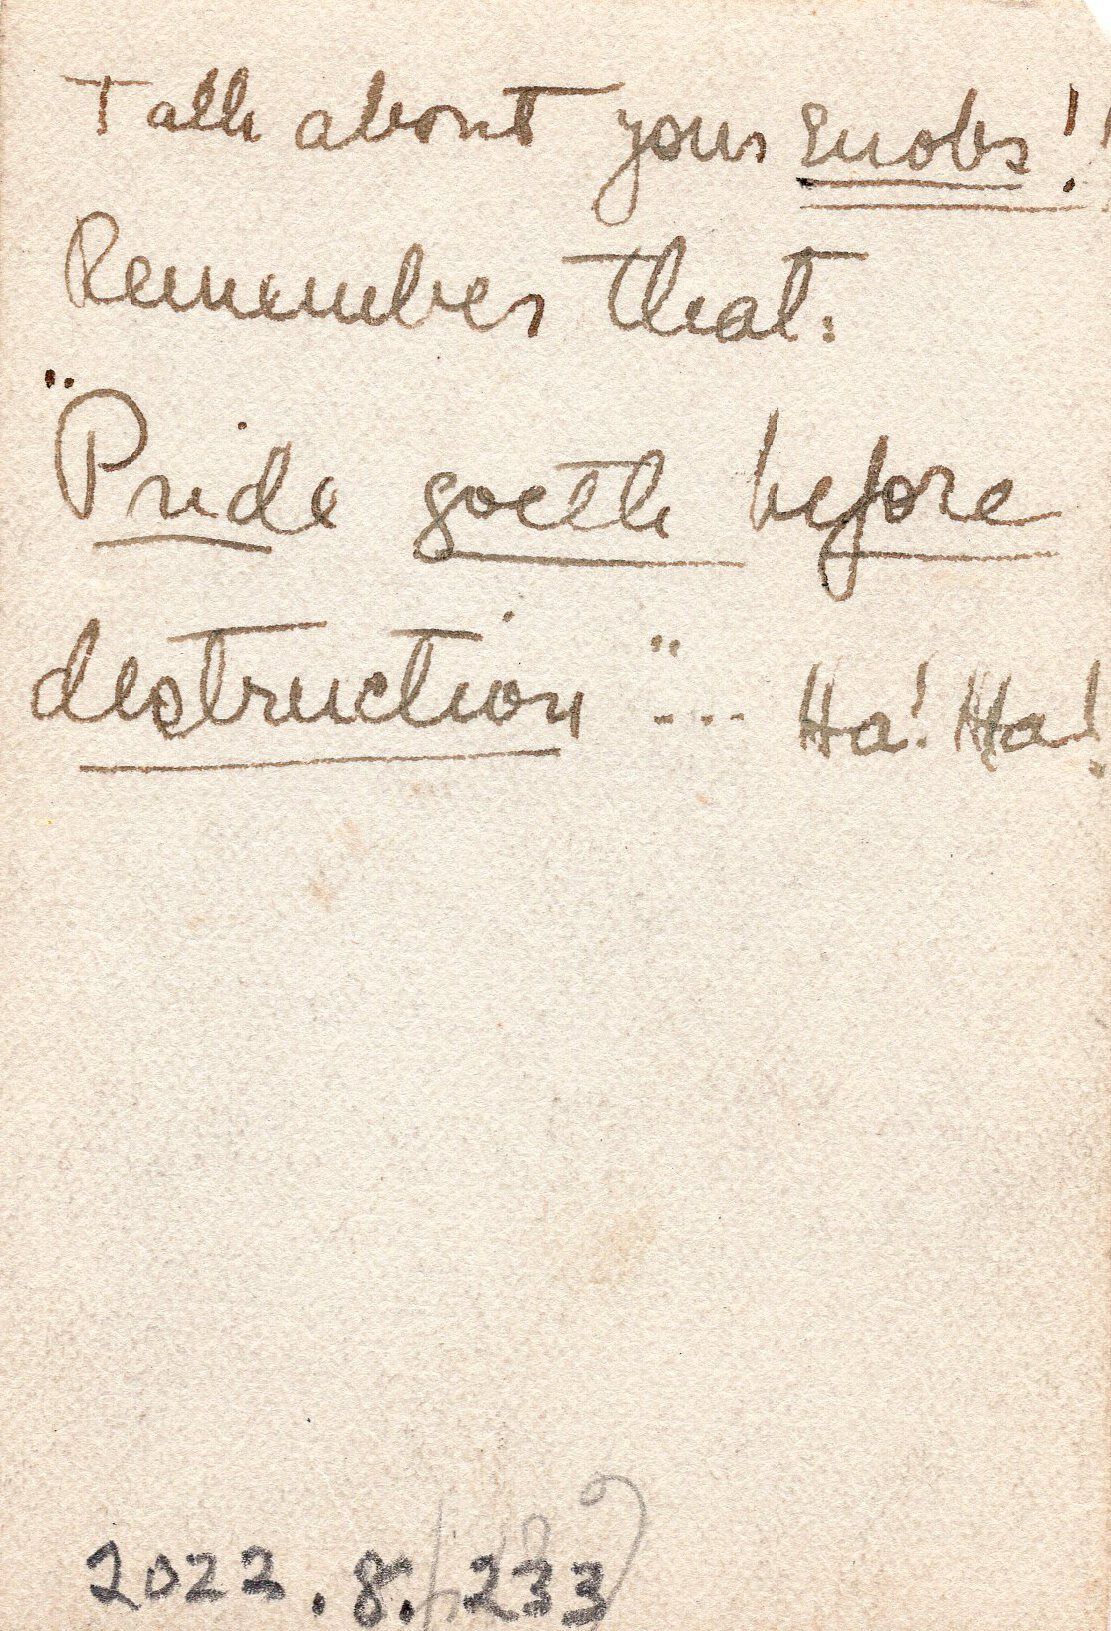 Talk about your snobs!!
Remember that:
"Pride goeth before
destruction"... Ha! Ha!
2022.8.233